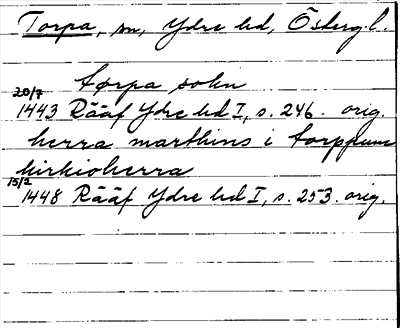 Torpa, sn, Ydre hd, Östergl.
tørpa sokn
20/7 1443 Rääf Ydre hd I, s. 246. orig.
herra marthins i torppum
kirkioherra
15/2 1448 Rääf Ydre hd I, s. 253. orig.